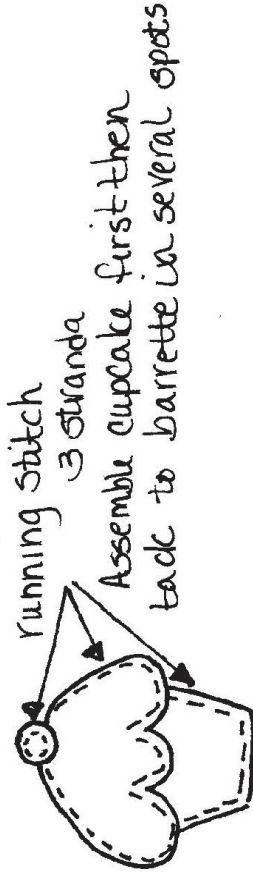 running stitch
3 strands
Assemble cupcake first then
tack to barrette in several spots